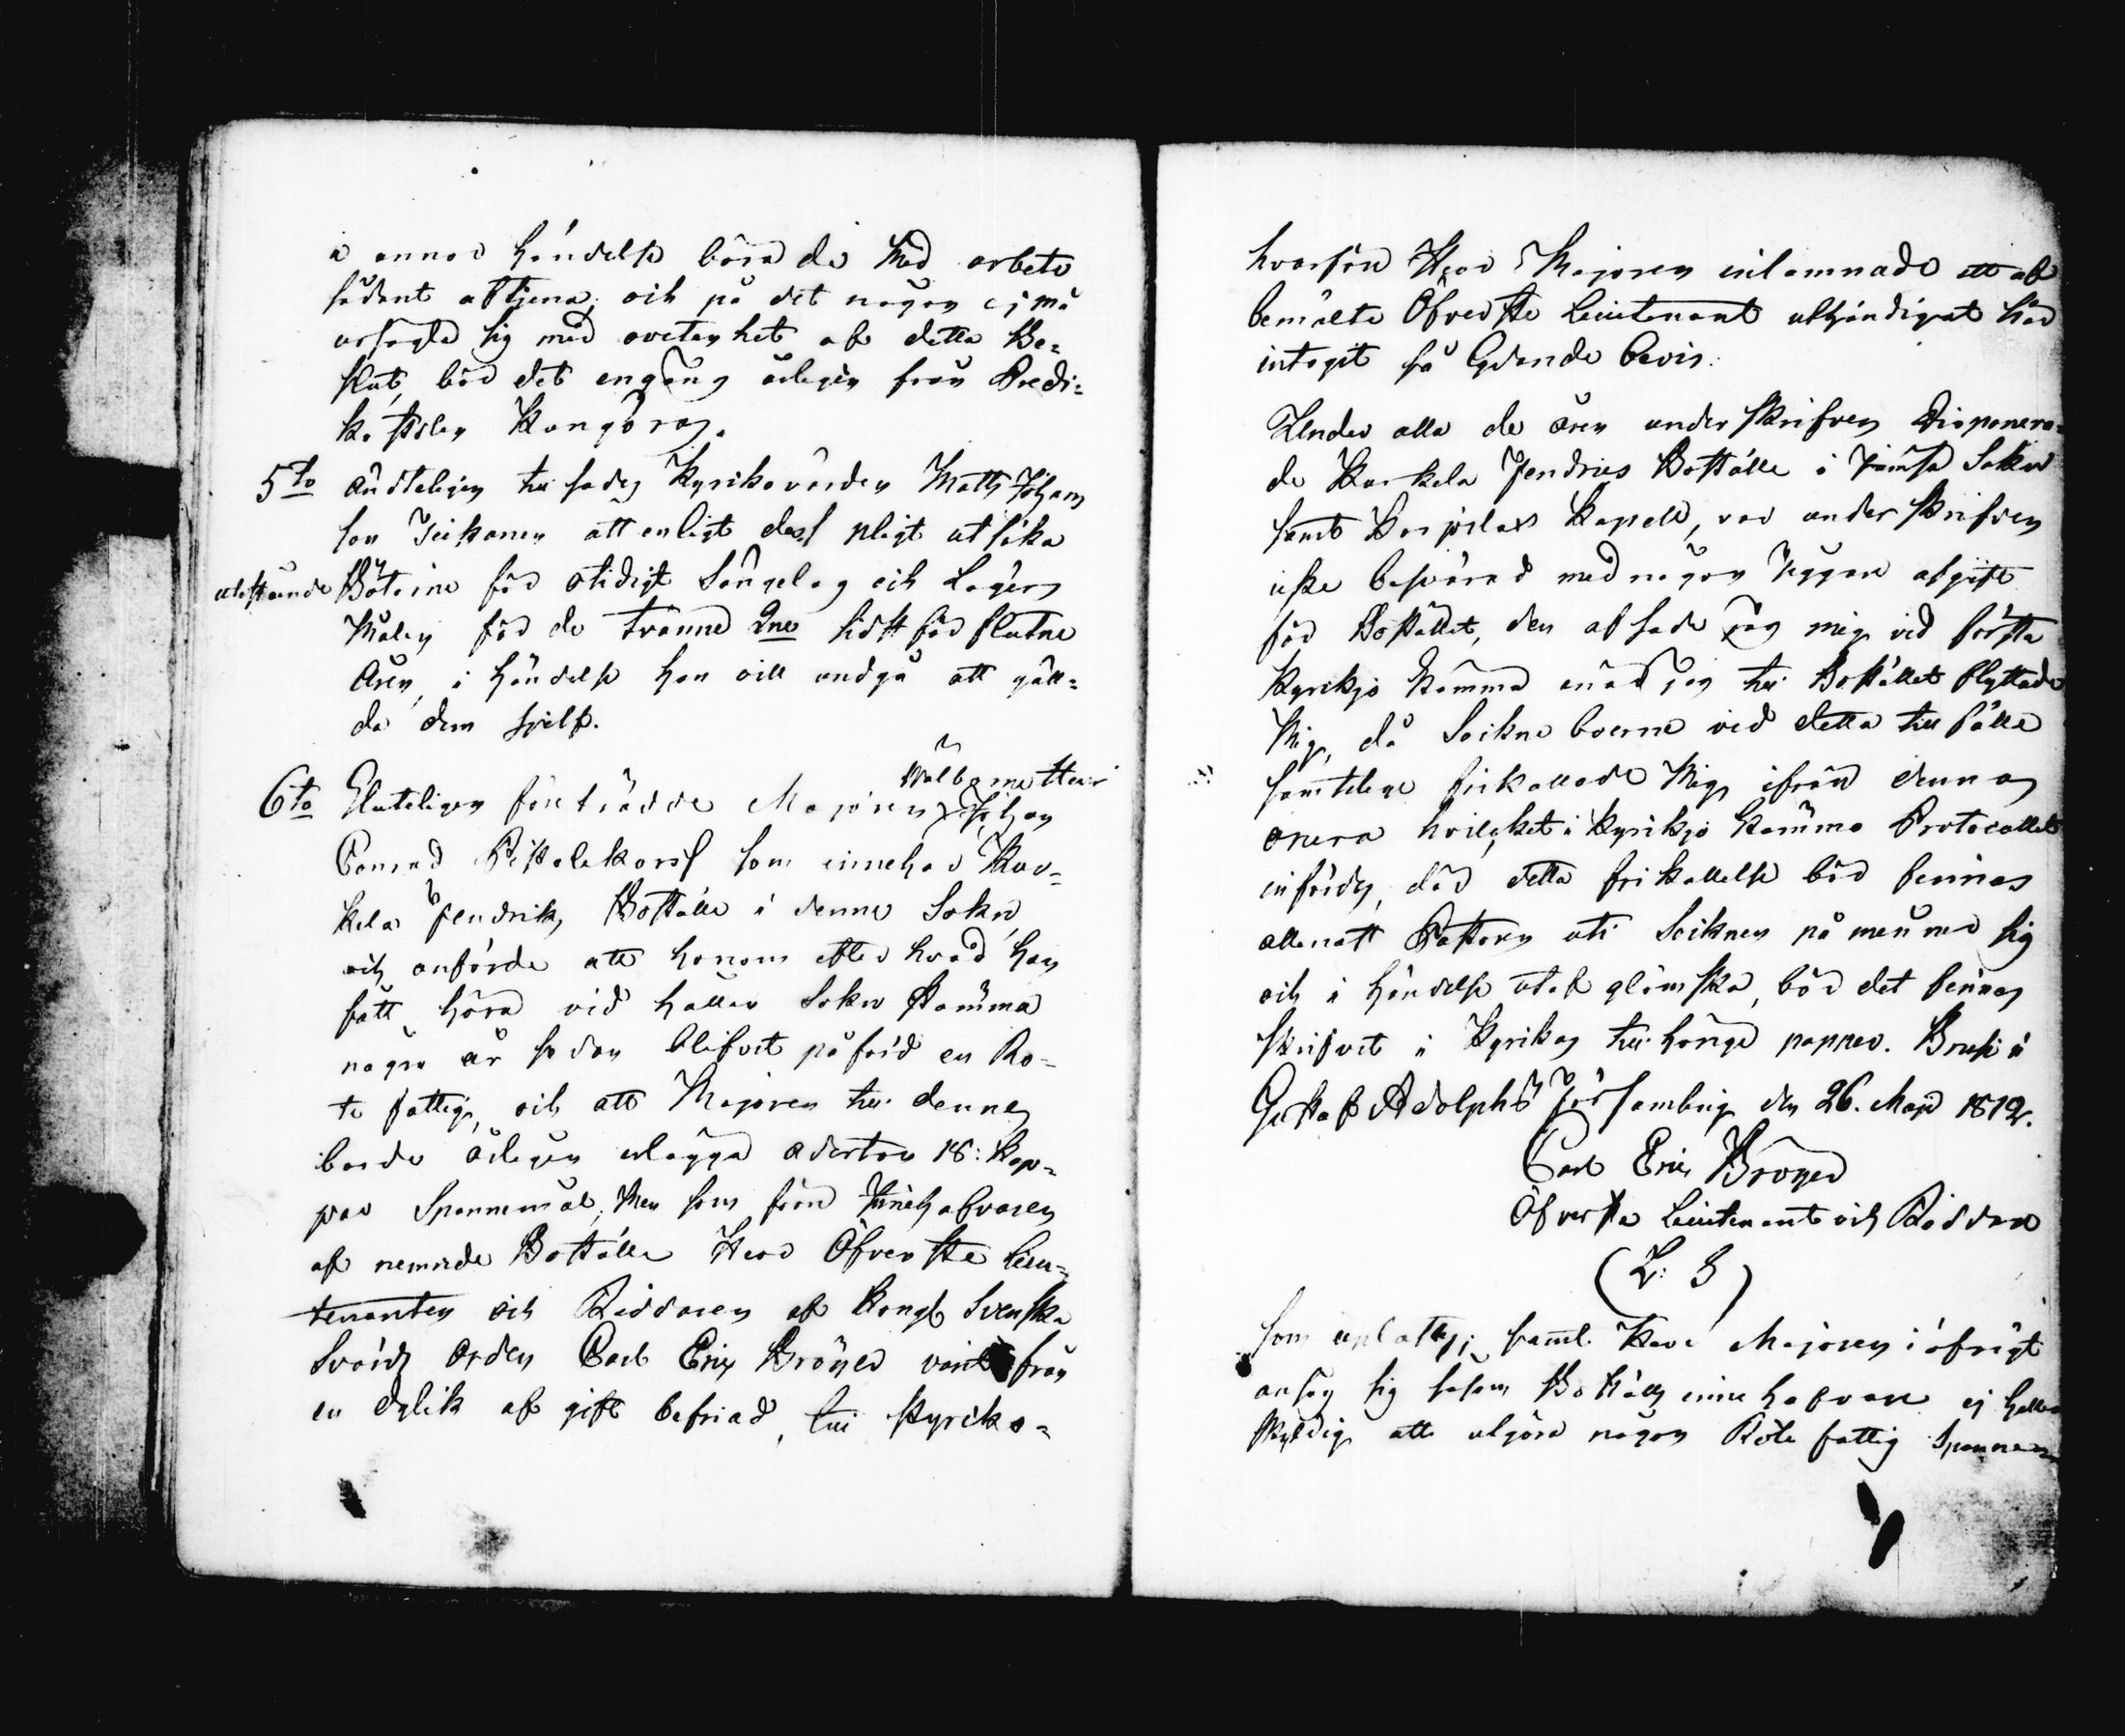 i annor händelse böra de med arbete
sådant aftjena, och på det någon ej må
ursägta sig med ovetenhet af detta Be-
slut, bör det engång årligen från Predi-
kostolen Kungöras.
5to Ändteligen tillsades Kyrkovärden Matts Johans
son att enligt dess pligt utsöka
utestående Böterne för otidigt Sängelag och Lägers
Målen för de tvänne 2ne sidst förflutne
Åren, i händelse han vill undgå att gäll-
da dem sjelf.
Välbemälter
6to Sluteligen företrädde Majoren Johan
Conrad som innehar Kar-
kela Jendriks Boställe i denne Sokn,
och anförde att honom efter hvad han
fått höra vid hållen Sokne Stämma
några år sedan blifvit påförd en Ro-
te fattig, och att Majoren till dennes
borde årligen erlägga aderton 18: Kap-
par Spannemål; Men som förre Innehafvaren
af nemnde Boställe Herr Öfverste Lieu-
tenanten och Riddaren af Kongl Svenska
Svärds Orden Carl Eric Bröijer varit från
en dylik afgift befriad, till styrks-
hvarföre Herr Majoren inlämnade ett af
bemälte Öfverste Lieutenant uthändigat här
intagit så lydande bevis:
Under alla de åren underskrifven Disponera-
de Karkela Jendries Boställe i Jämsä Sokn
samt Korpilax Kapell, var underskrifven
icke besvärad med någon afgift
för Bostället, den afsade jag mig vid första
Kyrkjo Stämma enär jag till Bostället flyttade
Mig, då Sokne boerne vid detta tillfälle
samtelige frikallade Mig ifrån denna
onera hvilket i Kyrkjo Stämmo Protocollet
infördes, där detta frikallelse bör finnas
allenast Pastorn uti Soknen påminner sig
och i händelse utaf glömska, bör det finnas
skrifvit i Kyrkans tillhörige papper. i
Gustaf Adolphs Församling den 26. Maji 1812.
Carl Eric Bröijer
Öfverste Lieutenant och Riddare
(L: S)
som uplästes; samt Herr Majoren i öfrigt
ansåg sig såsom Boställs innehafvare ej heller
skyldig att utgöra någon Rote fattig Spanne-